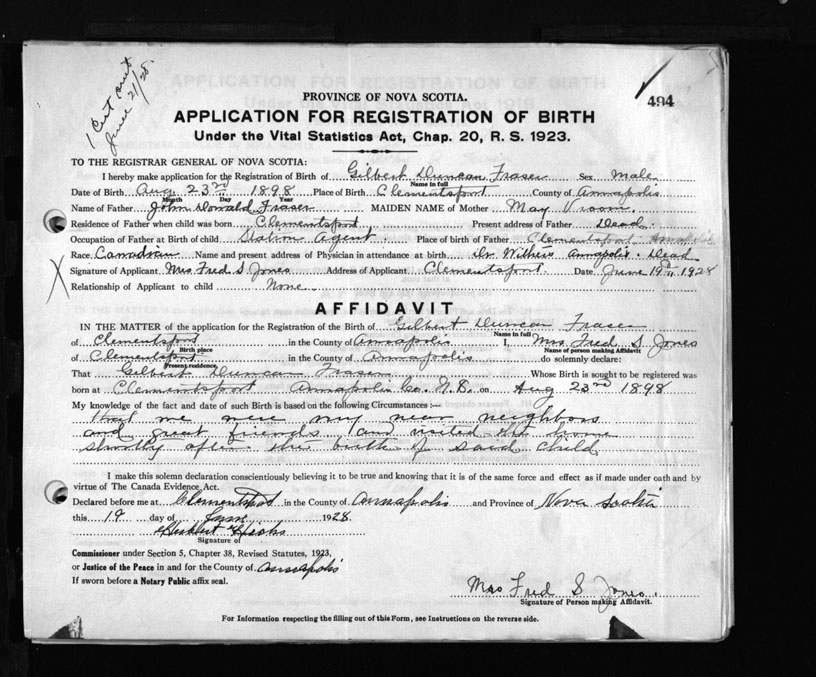 1 Cert sent
June 21/28.
494
PROVINCE OF NOVA SCOTIA.
APPLICATION FOR REGISTRATION OF BIRTH
Under the Vital Statistics Act, Chap. 20, R. S. 1923.
TO THE REGISTRAR GENERAL OF NOVA SCOTIA:
I hereby make application for the Registration of Birth of Gilbert Duncan Fraser Sex Male
Name in full
Date of Birth Aug 23rd 1898 Place of Birth Clementsport County of Annapolis
Month Day Year
Name of Father John Donald Fraser MAIDEN NAME of Mother May Vroom.
Residence of Father when child was born Clementsport Present address of Father Dead.
Occupation of Father at Birth of child Station Agent. Place of birth of Father Clementsport Annapolis
Race Canadian Name and present address of Physician in attendance at birth Dr Withers Annapolis. Dead
Signature of Applicant Mrs Fred S Jones Address of Applicant Clementsport Date June 19th 1928
Relationship of Applicant to child None.
AFFIDAVIT
IN THE MATTER of the application for the Registration of the Birth of Gilbert Duncan Fraser
Name in full
of Clementsport in the County of Annapolis I, Mrs. Fred S. Jones
Birth place Name of person making Affidavit
of Clementsport in the County of Annapolis do solemnly declare:
Present residence.
That Gilbert Duncan Fraser Whose Birth is sought to be registered was
born at Clementsport Annapolis Co. N.S. on Aug 23rd 1898
My knowledge of the fact and date of such Birth is based on the following Circumstances :—
that we were my near neighbors
and great friends and visited the home
shortly after the birth of said child
I make this solemn declaration conscientiously believing it to be true and knowing that it is of the same force and effect as if made under oath and by
virtue of The Canada Evidence Act.
Declared before me at Clementsport in the County of Annapolis and Province of Nova Scotia
this 19 day of June 1928.
Herbert Hicks
Signature of
Commissioner under Section 5, Chapter 38, Revised Statutes, 1923,
or Justice of the Peace in and for the County of Annapolis
If sworn before a Notary Public affix seal.
Mrs Fred S Jones.
Signature of Person making Affidavit.
For Information respecting the filling out of this Form, see Instructions on the reverse side.